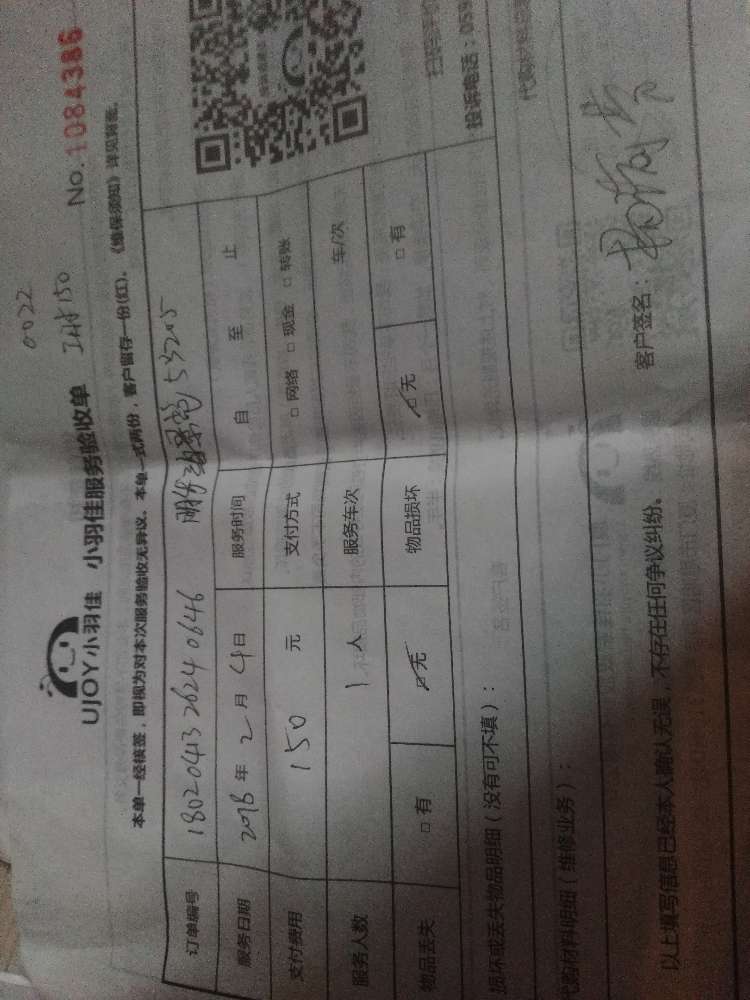 0022
UJOY小羽佳 小羽佳服务验收单 工时150 No.1084386
本单一经核签，即视为对本次服务验收无异议。本单一式两份，客户留存一份(红)。《维保须知》详见背面。
订单编号 1802041326240646 53205
服务日期 2018年2月4日 服务时间 自 至 止
支付费用 150 元 支付方式 □网络 □现金 □转账
服务人数 1人 服务车次 车/次
物品丢失 □有 ☑无 物品损坏 ☑无 □有
损坏或丢失物品明细（没有可不填）：
投诉电话：059
代购材料明细（维修业务）：
以上填写信息已经本人确认无误，不存在任何争议纠纷。 客户签名：